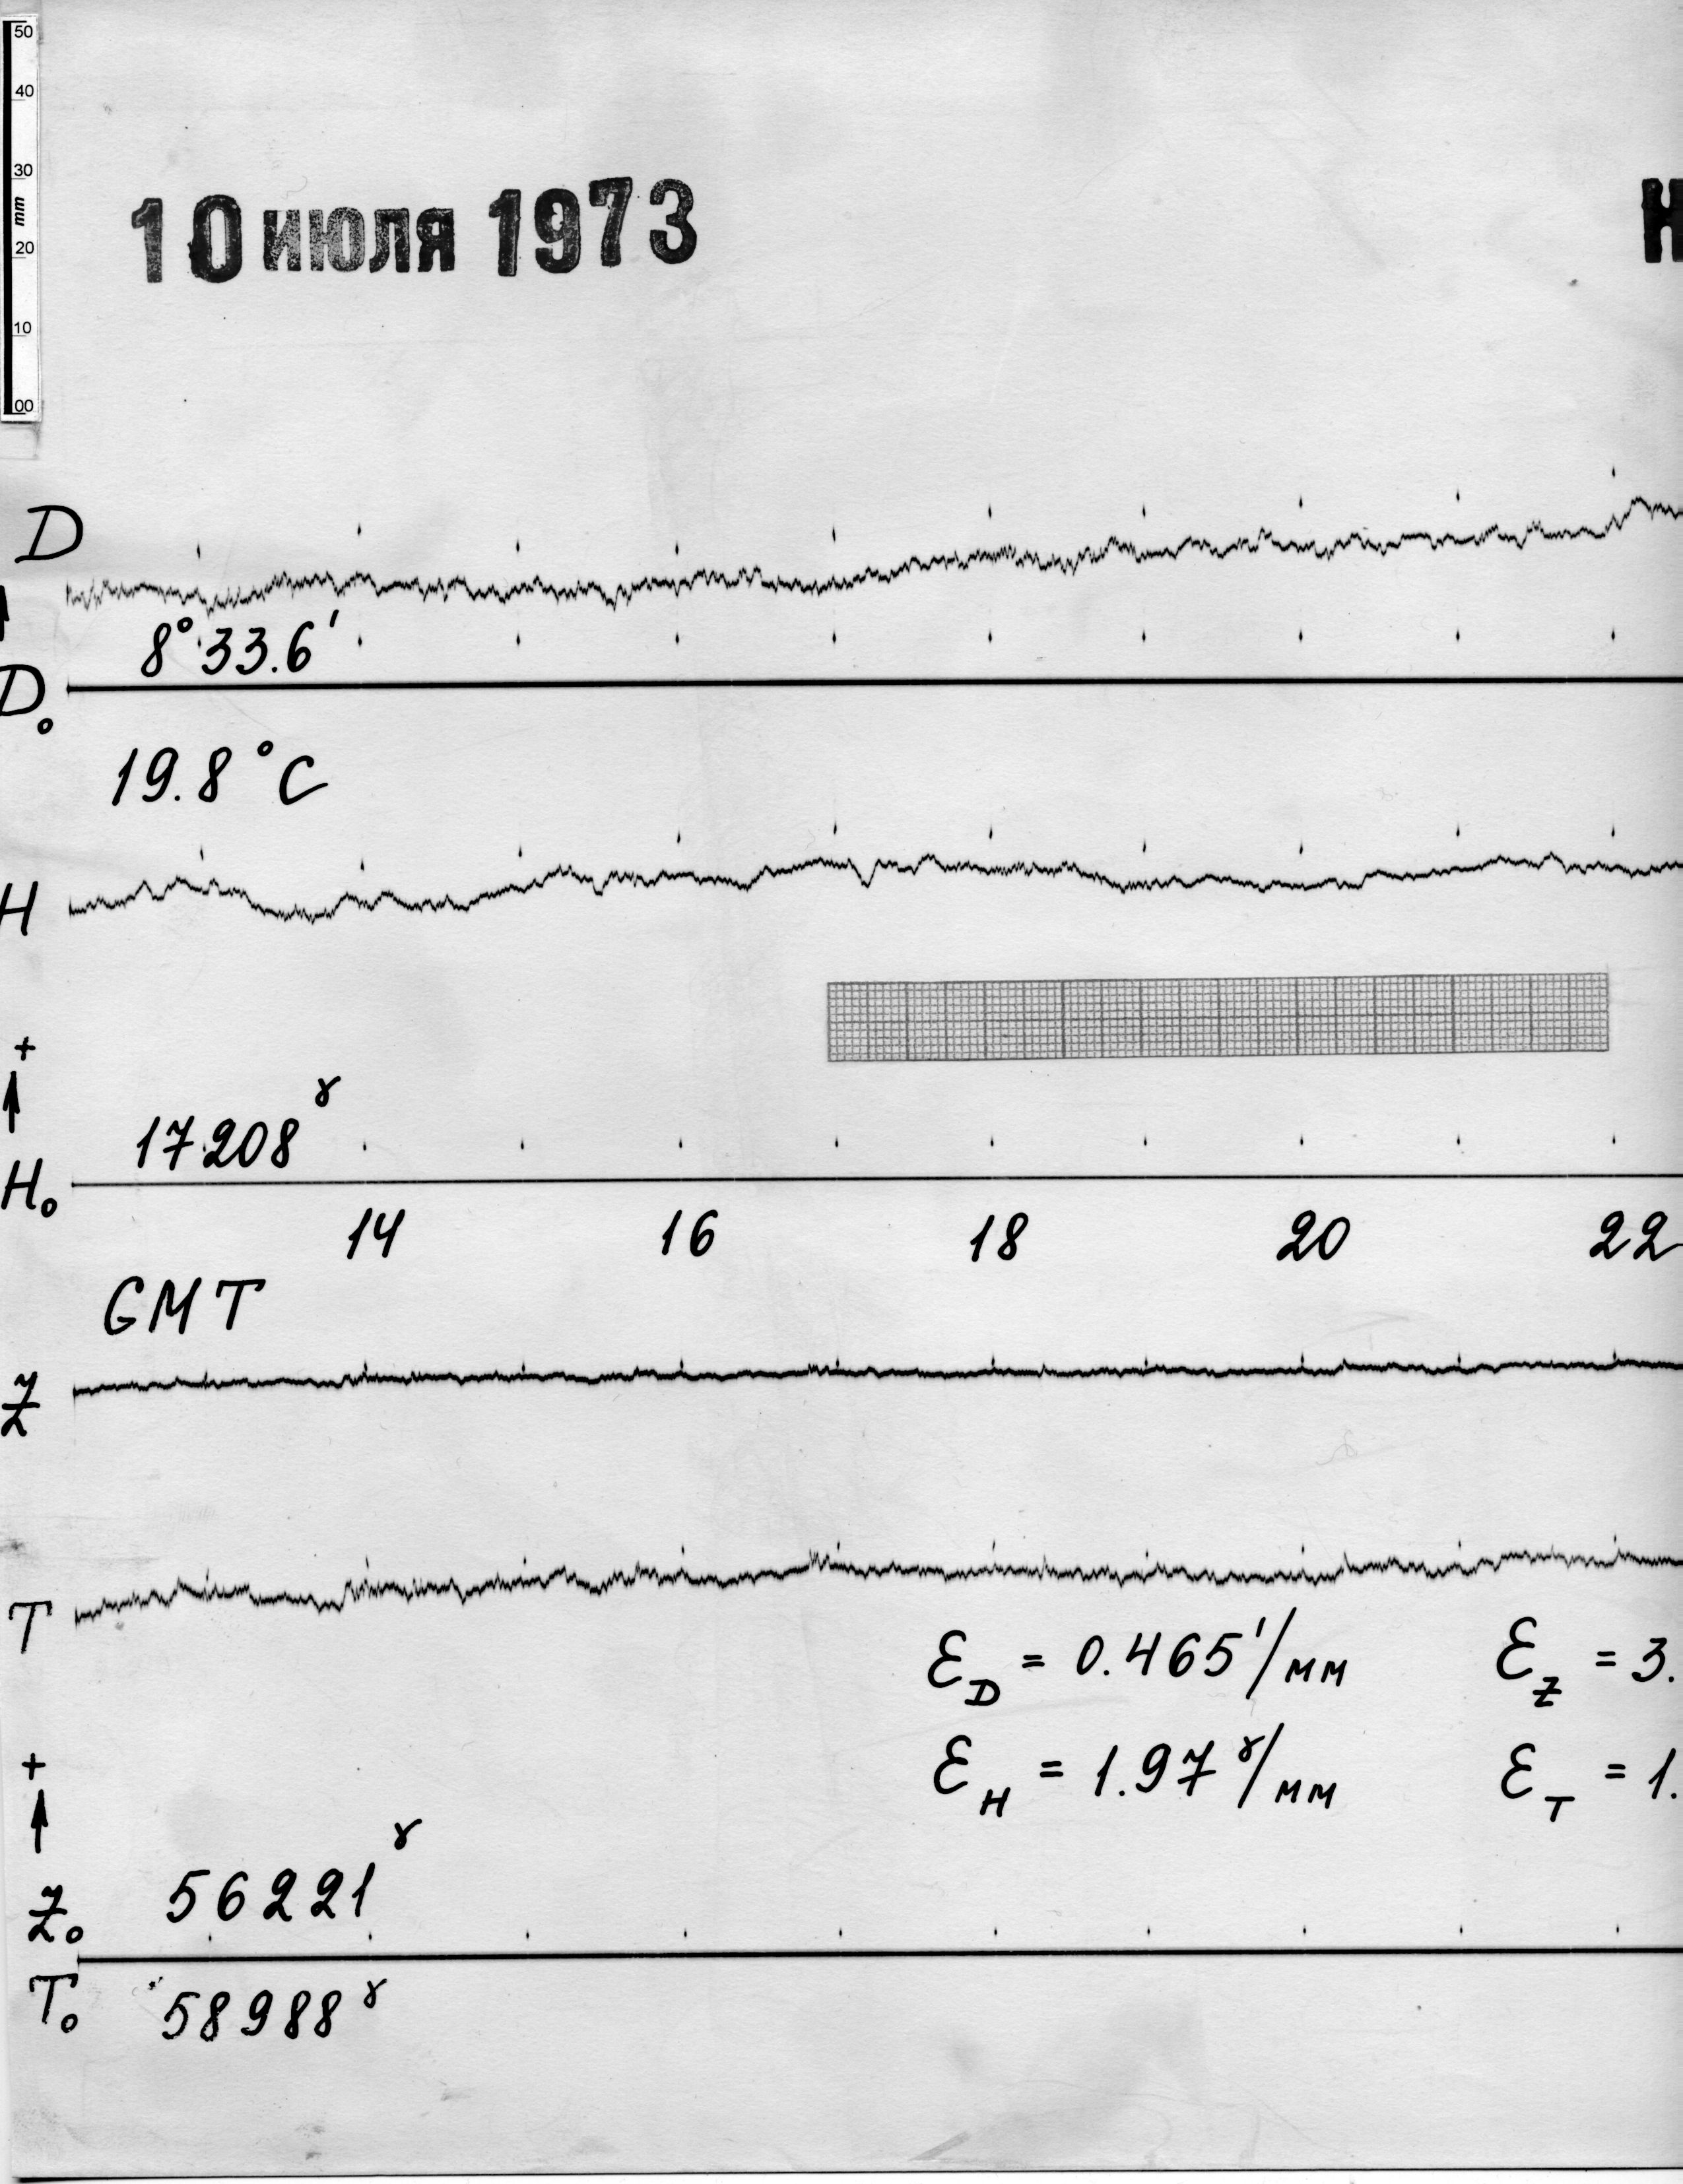 50
40
30
mm
20
10
00
10 июля 1973
Н
D
8°33.6'
D₀
19.8°C
H
+
17208ᵞ
H₀
14 16 18 20 22
GMT
Z
T
Ɛ_D = 0.465'/мм Ɛ_Z = 3.
Ɛ_H = 1.97ᵞ/мм Ɛ_T = 1.
+
56221ᵞ
Z₀
T₀ 58988ᵞ